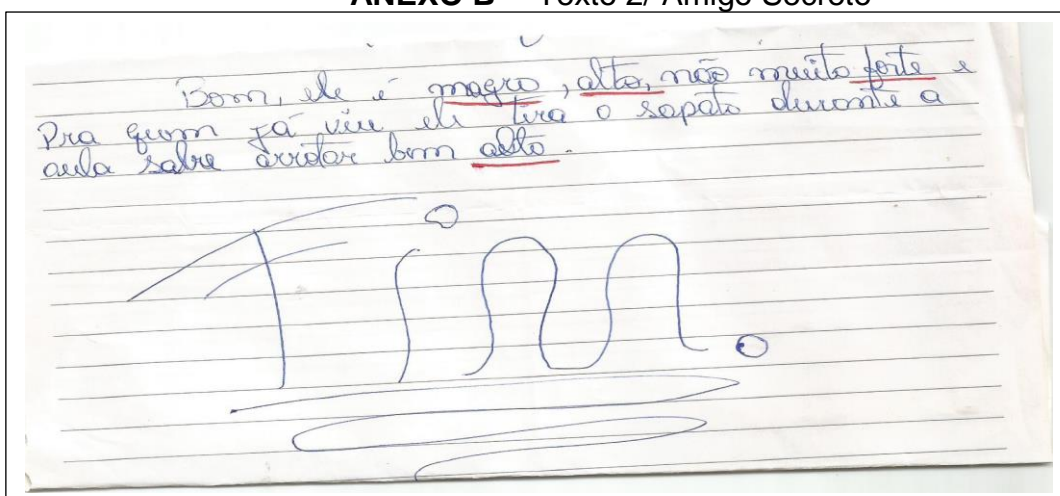 ANEXO B – Texto 2/ Amigo Secreto
Bom, ele é magro, alto, não muito forte e
Pra quem já viu ele tira o sapato durante a
aula sabe arrotar bem alto.
Fim.